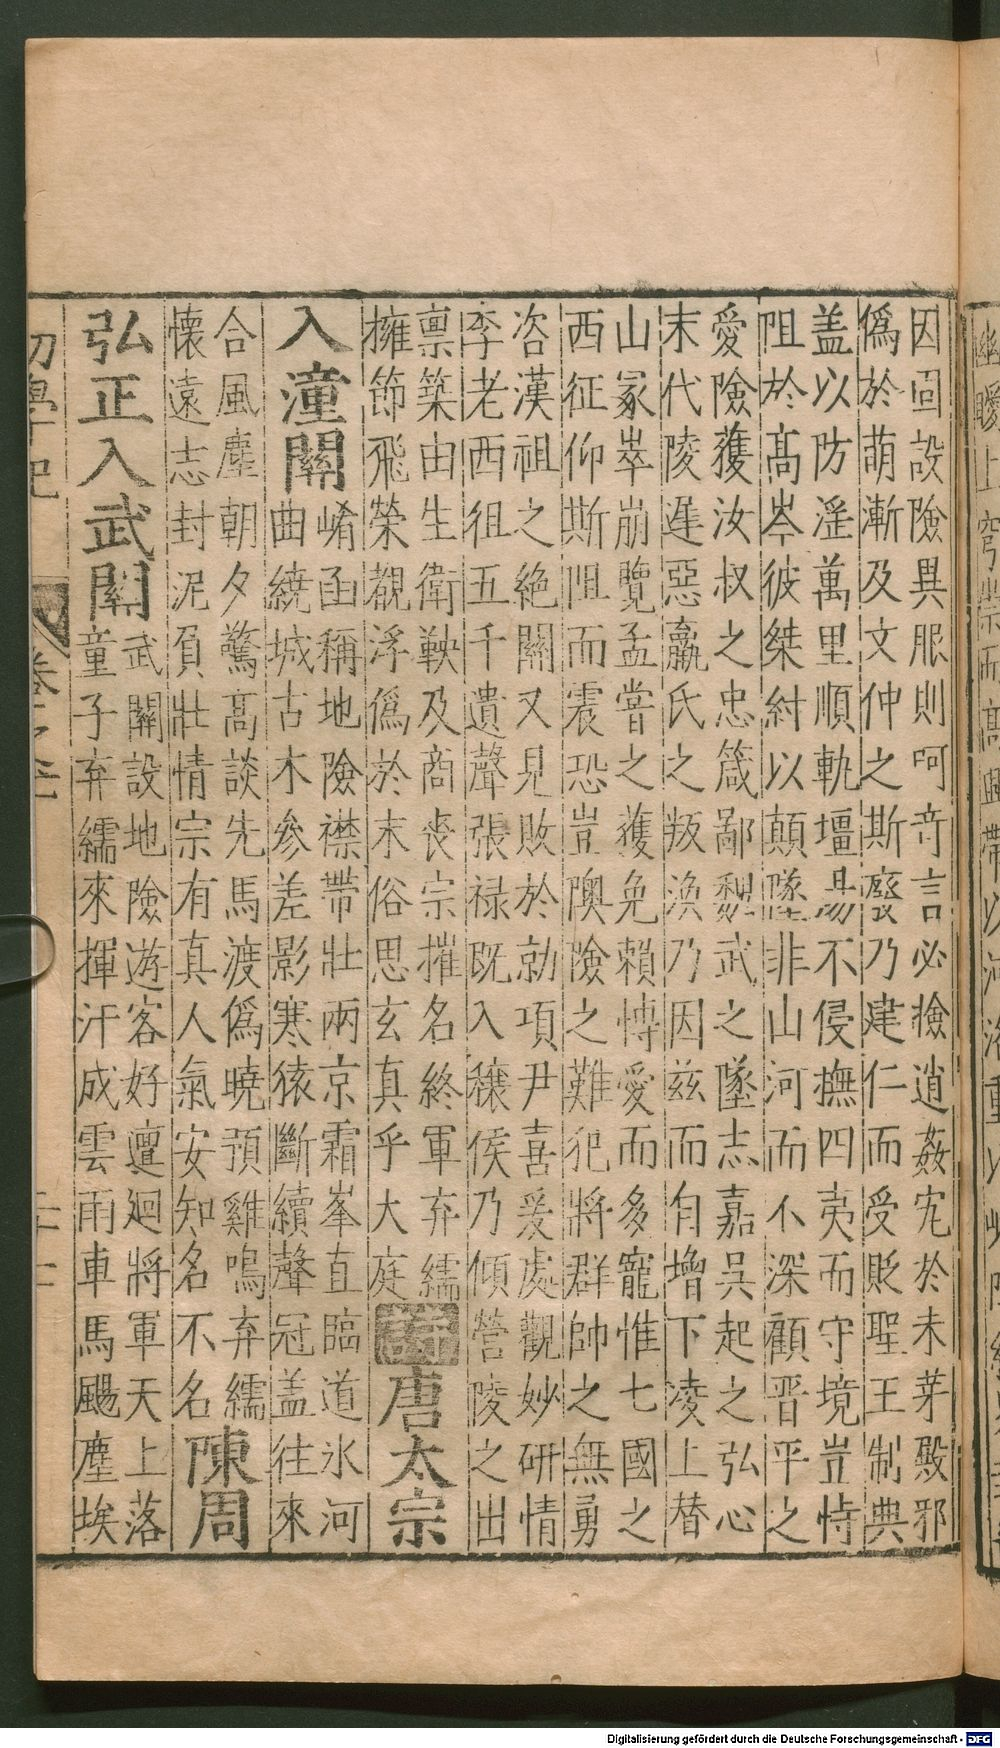 因固設險異服則呵竒言必撿逍姦宄於未芽殿邪
偽於萌漸及文仲之斯廢乃建仁而受貶聖王制典
盖以防淫萬里順軌壃埸不侵撫四夷而守境豈恃
阻於髙岑彼桀紂以顛墜非山河而不深顧晋平之
愛險獲汝叔之忠箴鄙魏武之墜志嘉吳起之弘心
末代陵遲惡嬴氏之叛渙乃因兹而自增下凌上替
山冢崒崩覽孟甞之獲免賴博愛而多寵惟七國之
西征仰斯阻而震恐豈隩險之難犯將群帥之無勇
咨漢祖之絶關又見敗於勍項尹喜爰處觀妙研情
李老西徂五千遺聲張禄既入穰侯乃傾營陵之出
禀築由生衛鞅及商喪宗摧名終軍弃繻
擁節飛榮覩浮偽於末俗思玄真乎大庭
詩唐太宗
入潼關
崤函稱地險襟帶壯兩京霜峯直臨道氷河
曲繞城古木參差影寒猿斷續聲冠盖往來
合風塵朝夕驚髙談先馬渡偽曉預雞鳴弃繻
懷遠志封泥負壯情宗有真人氣安知名不名
陳周
弘正入武關
武關設地險遊客好邅迴將軍天上落
童子弃繻來揮汗成雲雨車馬颺塵埃
初學記
Digitalisierung gefördert durch die Deutsche Forschungsgemeinschaft - DFG